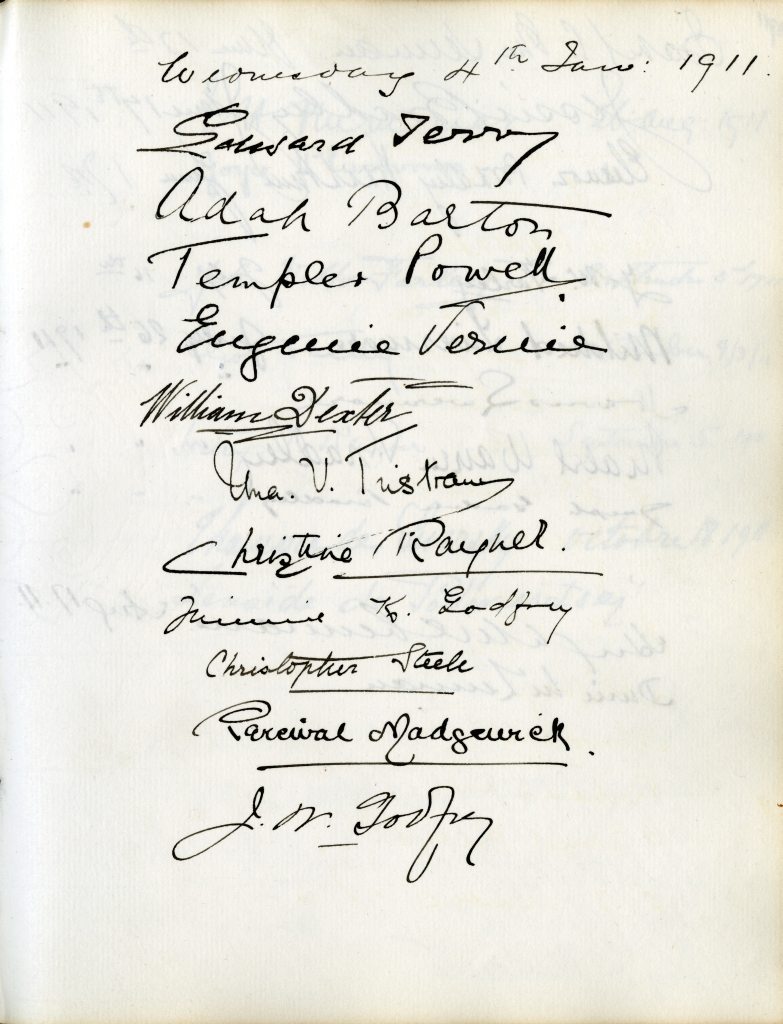 Wednesday 4th Jan: 1911.
Edward Terry
Adah Barton
Templer Powell
Eugenie Vernie
William Dexter
Una. V. Tristram
Christine Rayner.
Minnie K. Godfrey
Christopher Steele
Parcival Madgewick.
J. W. Godfrey